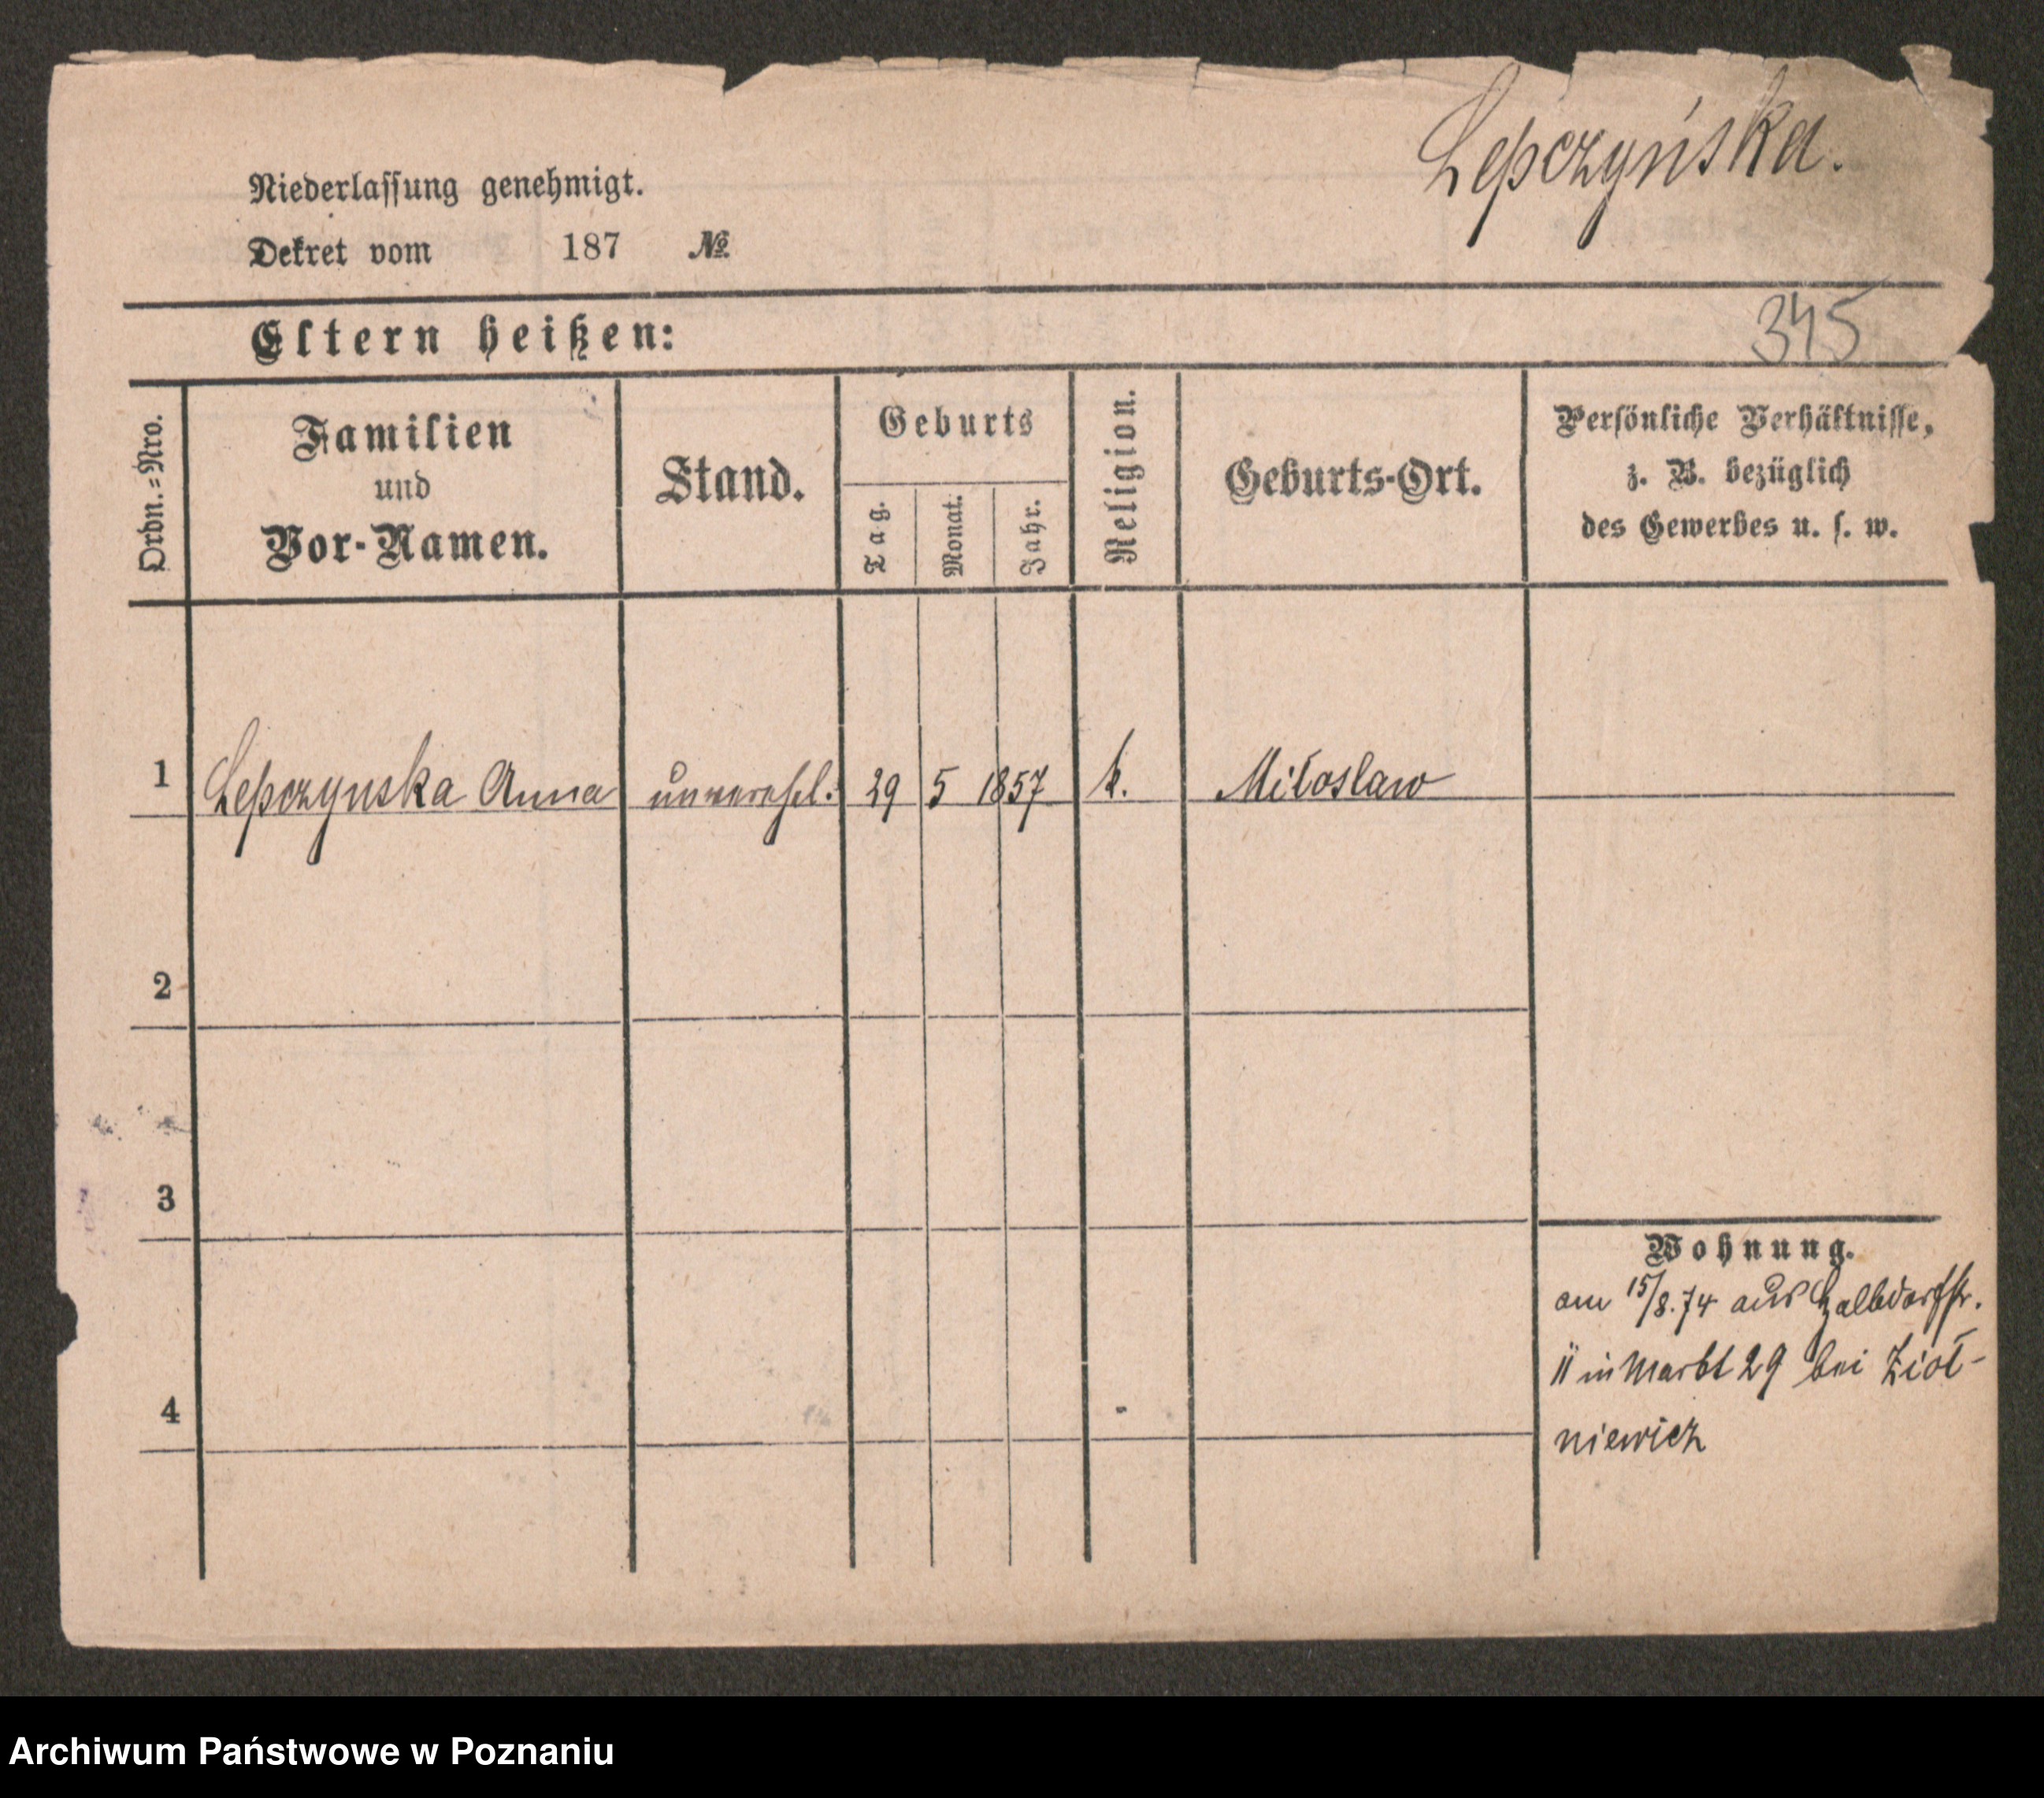 Lepczyńska.
Niederlassung genehmigt.
Dekret vom 187 №
345
Eltern heißen:
Ordn.=Nro.
Familien
und
Vor-Namen.
Stand.
Geburts
Tag.
Monat.
Jahr.
Religion.
Geburts-Ort.
Persönliche Verhältnisse,
z. B. bezüglich
des Gewerbes u. s. w.
1 Lepczynska Anna unverehl. 29 5 1857 k. Miłoslaw
2
3
4
Wohnung.
am 15/8.74 aus Halbdorfstr.
11 in Markt 29 bei Ziół-
niewicz
Archiwum Państwowe w Poznaniu